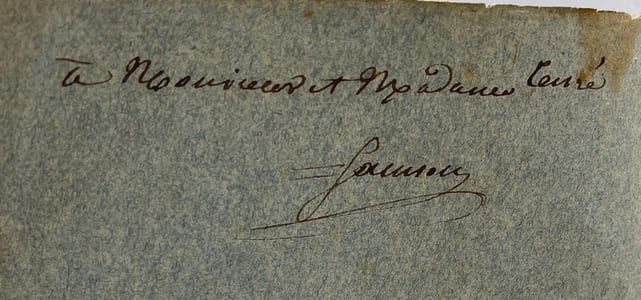 à Monsieur et Madame Terré
Samson